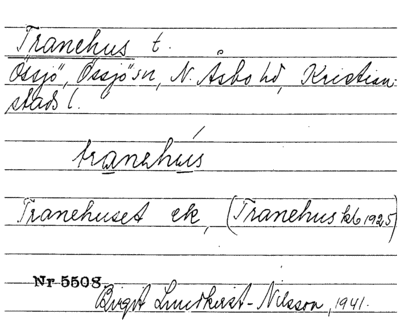 Tranehus t.
Össjö, Össjö sn, N. Åsbo hd, Kristian-
stads l.
tranehús
Tranehuset ek, (Tranehus kb 1925)
Nr 5508
Birgit Lundkvist-Nilsson, 1941.